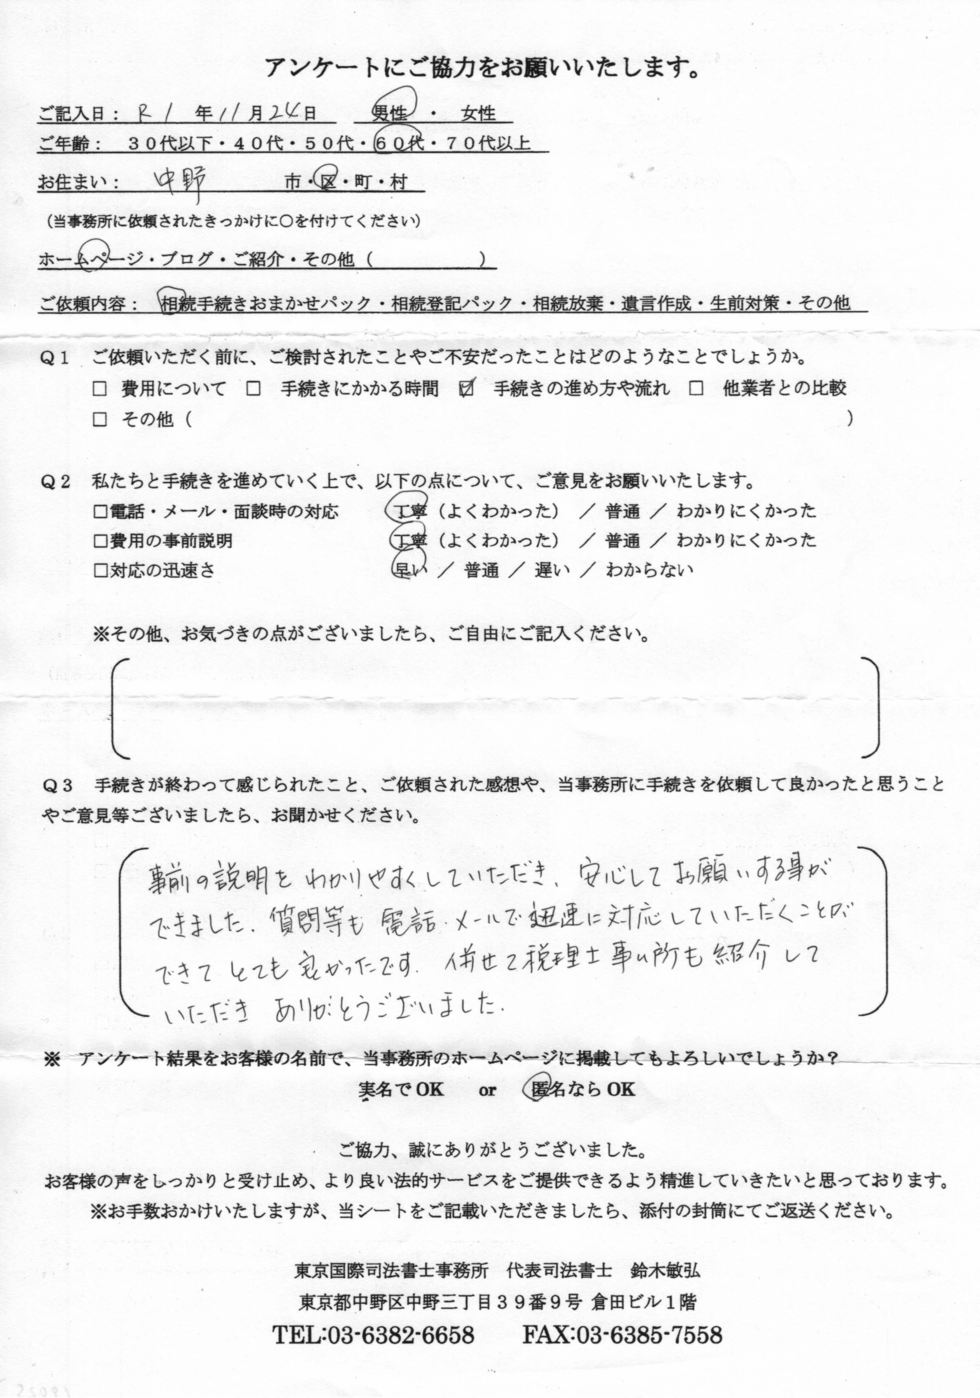 アンケートにご協力をお願いいたします。
ご記入日： R1 年 11 月 24 日 男性 ・ 女性
ご年齢： ３０代以下・４０代・５０代・６０代・７０代以上
お住まい： 中野 市・区・町・村
（当事務所に依頼されたきっかけに〇を付けてください）
ホームページ・ブログ・ご紹介・その他（ ）
ご依頼内容： 相続手続きおまかせパック・相続登記パック・相続放棄・遺言作成・生前対策・その他
Ｑ１ ご依頼いただく前に、ご検討されたことやご不安だったことはどのようなことでしょうか。
□ 費用について □ 手続きにかかる時間 ☑ 手続きの進め方や流れ □ 他業者との比較
□ その他（ ）
Ｑ２ 私たちと手続きを進めていく上で、以下の点について、ご意見をお願いいたします。
□電話・メール・面談時の対応 丁寧（よくわかった） ／ 普通 ／ わかりにくかった
□費用の事前説明 丁寧（よくわかった） ／ 普通 ／ わかりにくかった
□対応の迅速さ 早い ／ 普通 ／ 遅い ／ わからない
※その他、お気づきの点がございましたら、ご自由にご記入ください。
Ｑ３ 手続きが終わって感じられたこと、ご依頼された感想や、当事務所に手続きを依頼して良かったと思うこと
やご意見等ございましたら、お聞かせください。
事前の説明をわかりやすくしていただき、安心してお願いする事が
できました。質問等も電話・メールで迅速に対応していただくことが
できてとても良かったです。併せて税理士事ム所も紹介して
いただきありがとうございました。
※ アンケート結果をお客様の名前で、当事務所のホームページに掲載してもよろしいでしょうか？
実名でOK or 匿名ならOK
ご協力、誠にありがとうございました。
お客様の声をしっかりと受け止め、より良い法的サービスをご提供できるよう精進していきたいと思っております。
※お手数おかけいたしますが、当シートをご記載いただきましたら、添付の封筒にてご返送ください。
東京国際司法書士事務所 代表司法書士 鈴木敏弘
東京都中野区中野三丁目３９番９号 倉田ビル１階
TEL:03-6382-6658 FAX:03-6385-7558